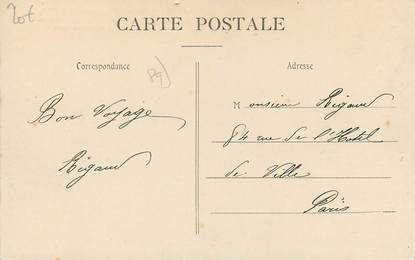 Lot
CARTE POSTALE
Correspondance
Adresse
Bon Voyage
Rigaud
Monsieur Rigaud
84 rue de l'Hotel
de Ville
Paris